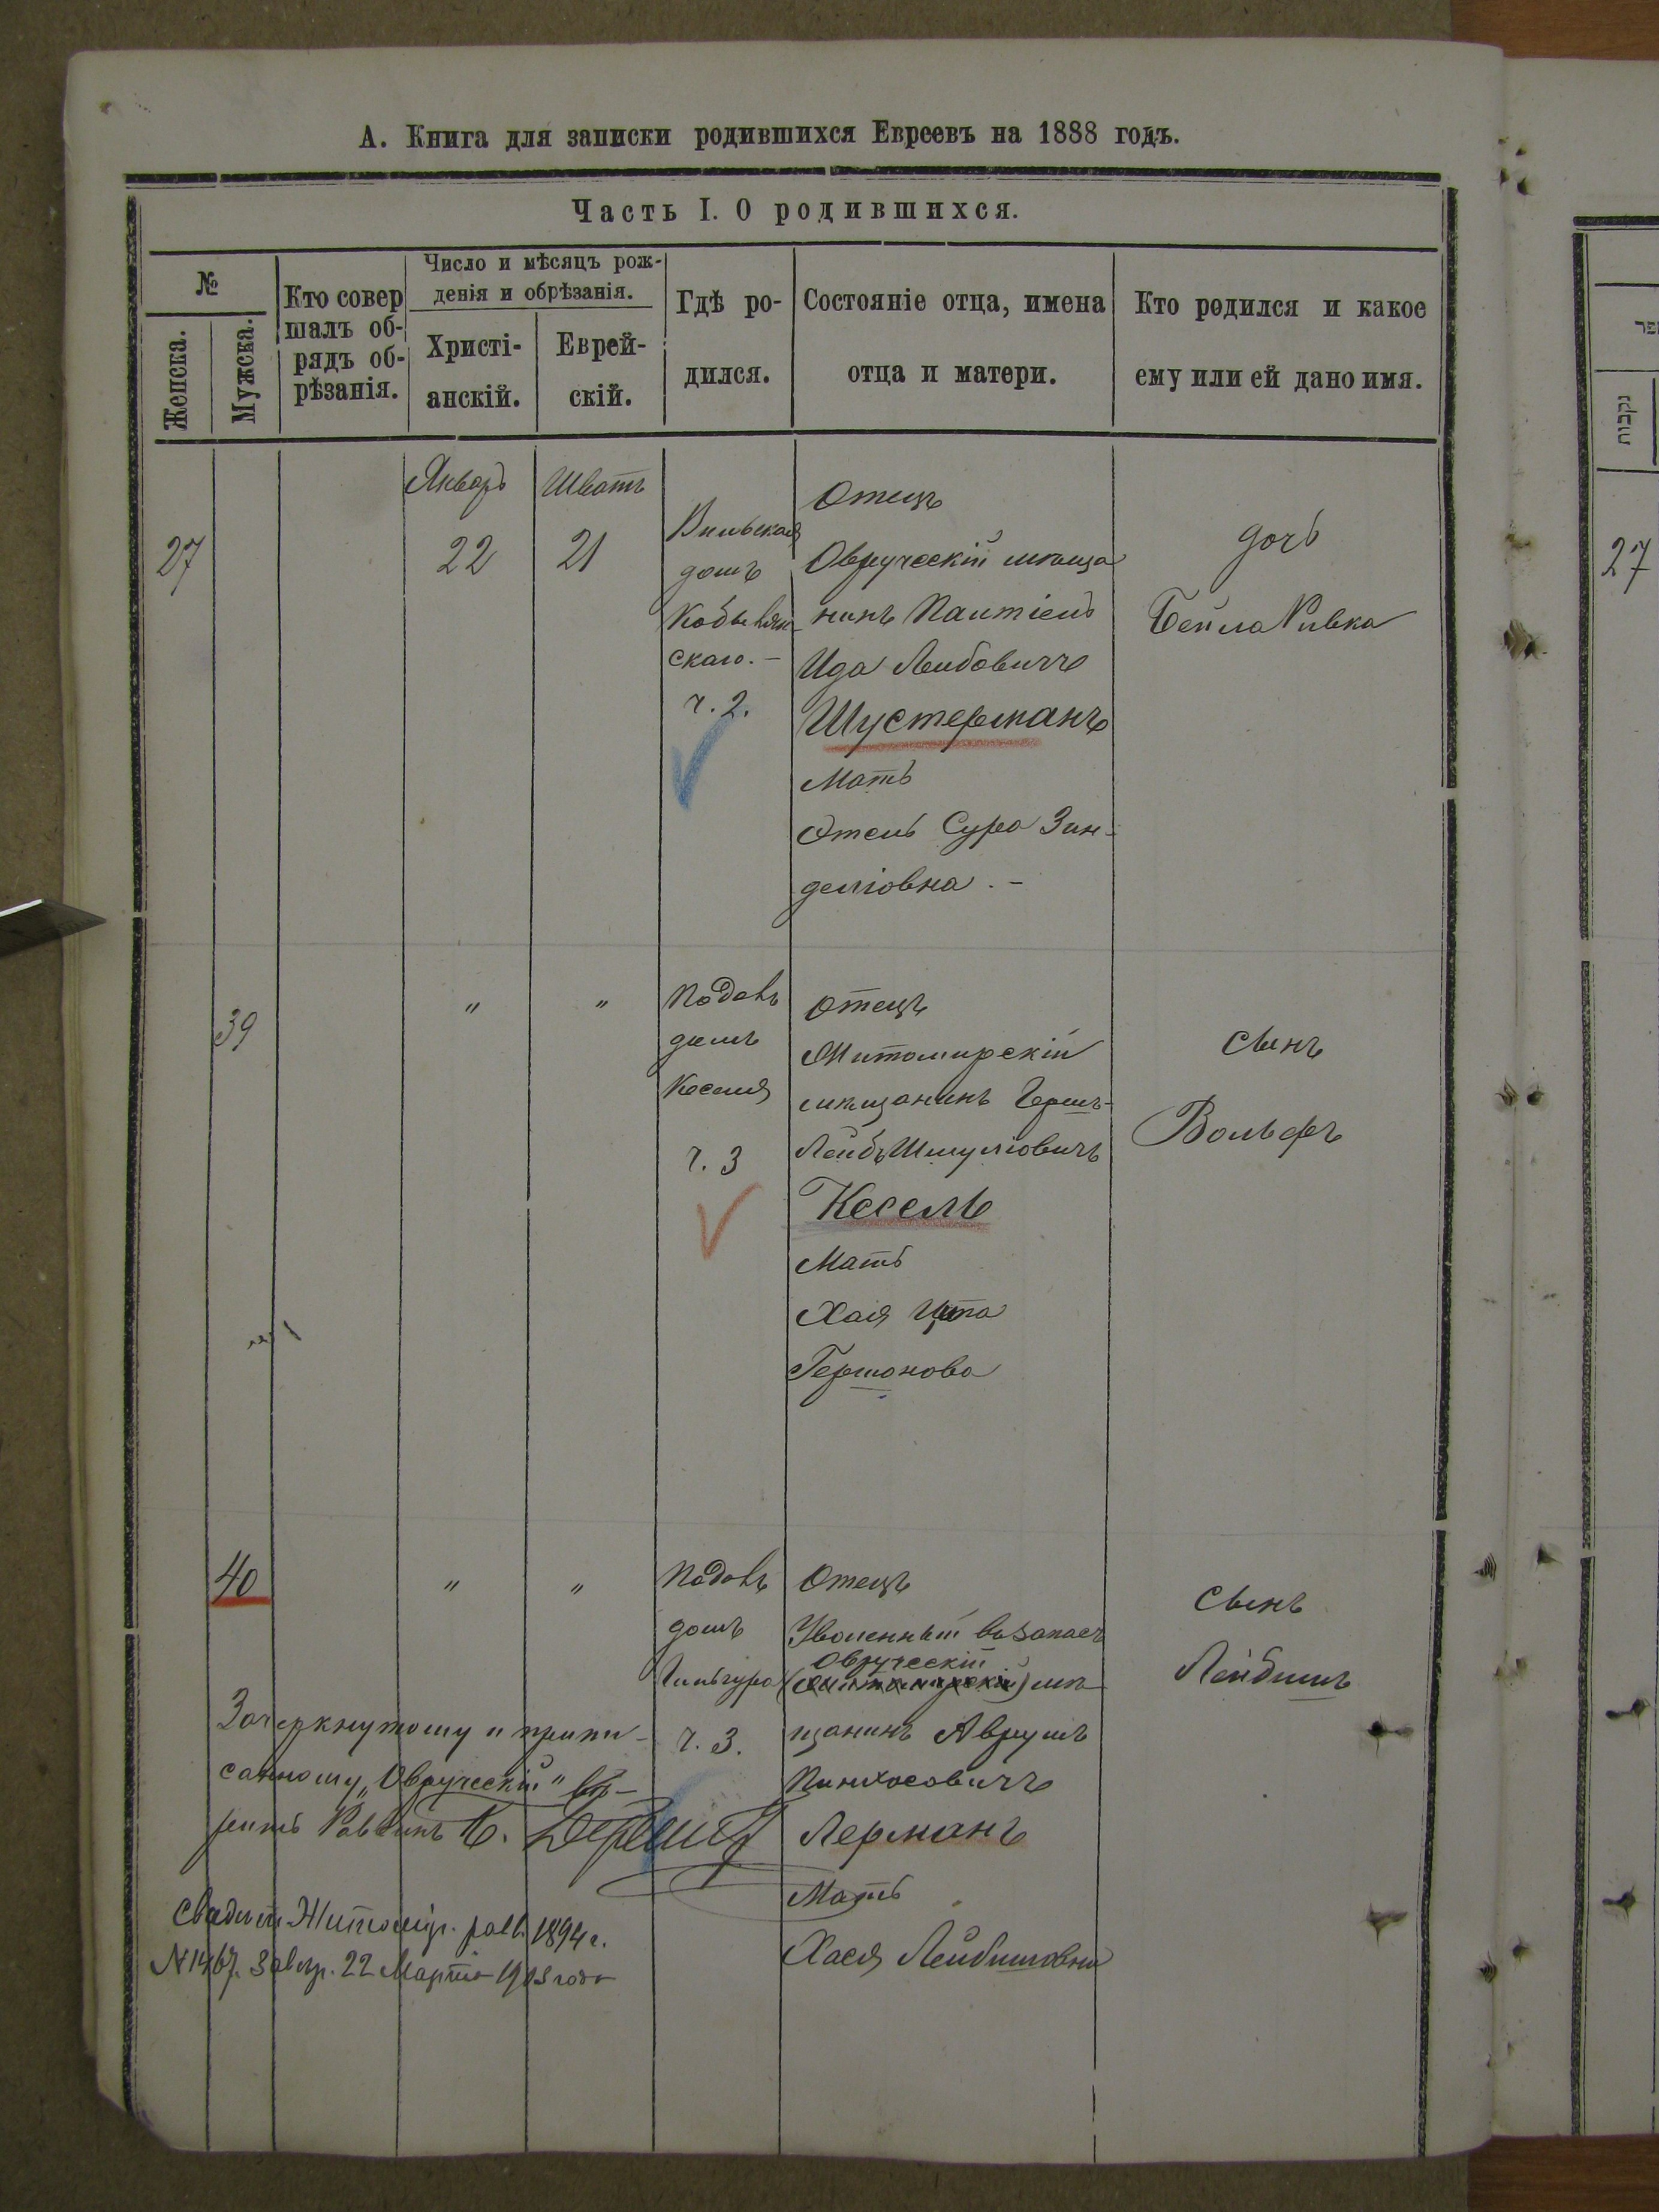 А. Книга для записки родившихся Евреевъ на 1888 годъ.
Часть I. О родившихся.
№
Женска.
Мужска.
Кто совер
шалъ об-
рядъ об-
рѣзанія.
Число и мѣсяцъ рож-
денія и обрѣзанія.
Христі-
анскій.
Еврей-
скій.
Гдѣ ро-
дился.
Состояніе отца, имена
отца и матери.
Кто родился и какое
ему или ей дано имя.
27
Январь
22
Шватъ
21
Вильская
домъ
Кобылян-
скаго.-
ч. 2.
Отецъ
Овручскій мѣща
нинъ
Ида Лейбовичъ
Шустерманъ
Мать
Сура Зин-
деліовна.-
дочь
Бейла Ривка
39
"
"
Подолъ
домъ
Кеселя
ч. 3
Отецъ
Житомирскій
мѣщанинъ Гершъ-
Лейбъ Шмуліовичъ
Кесель
Мать
Хая Ита
Гершонова
сынъ
Вольфъ
40
"
"
Подолъ
домъ
ч. 3.
Отецъ
Уволенный въ запасъ
Овручскій
(Житомирскій) мѣ-
щанинъ Аврумъ
Пинхосовичъ
Лерманъ
Мать
Хася Лейбишовна
сынъ
Лейбишъ
Зачеркнутому и припи-
санному „Овручскій" вѣ-
рить Раввинъ
Житомір. 1894 г.
22 Марта года
נקבות
27